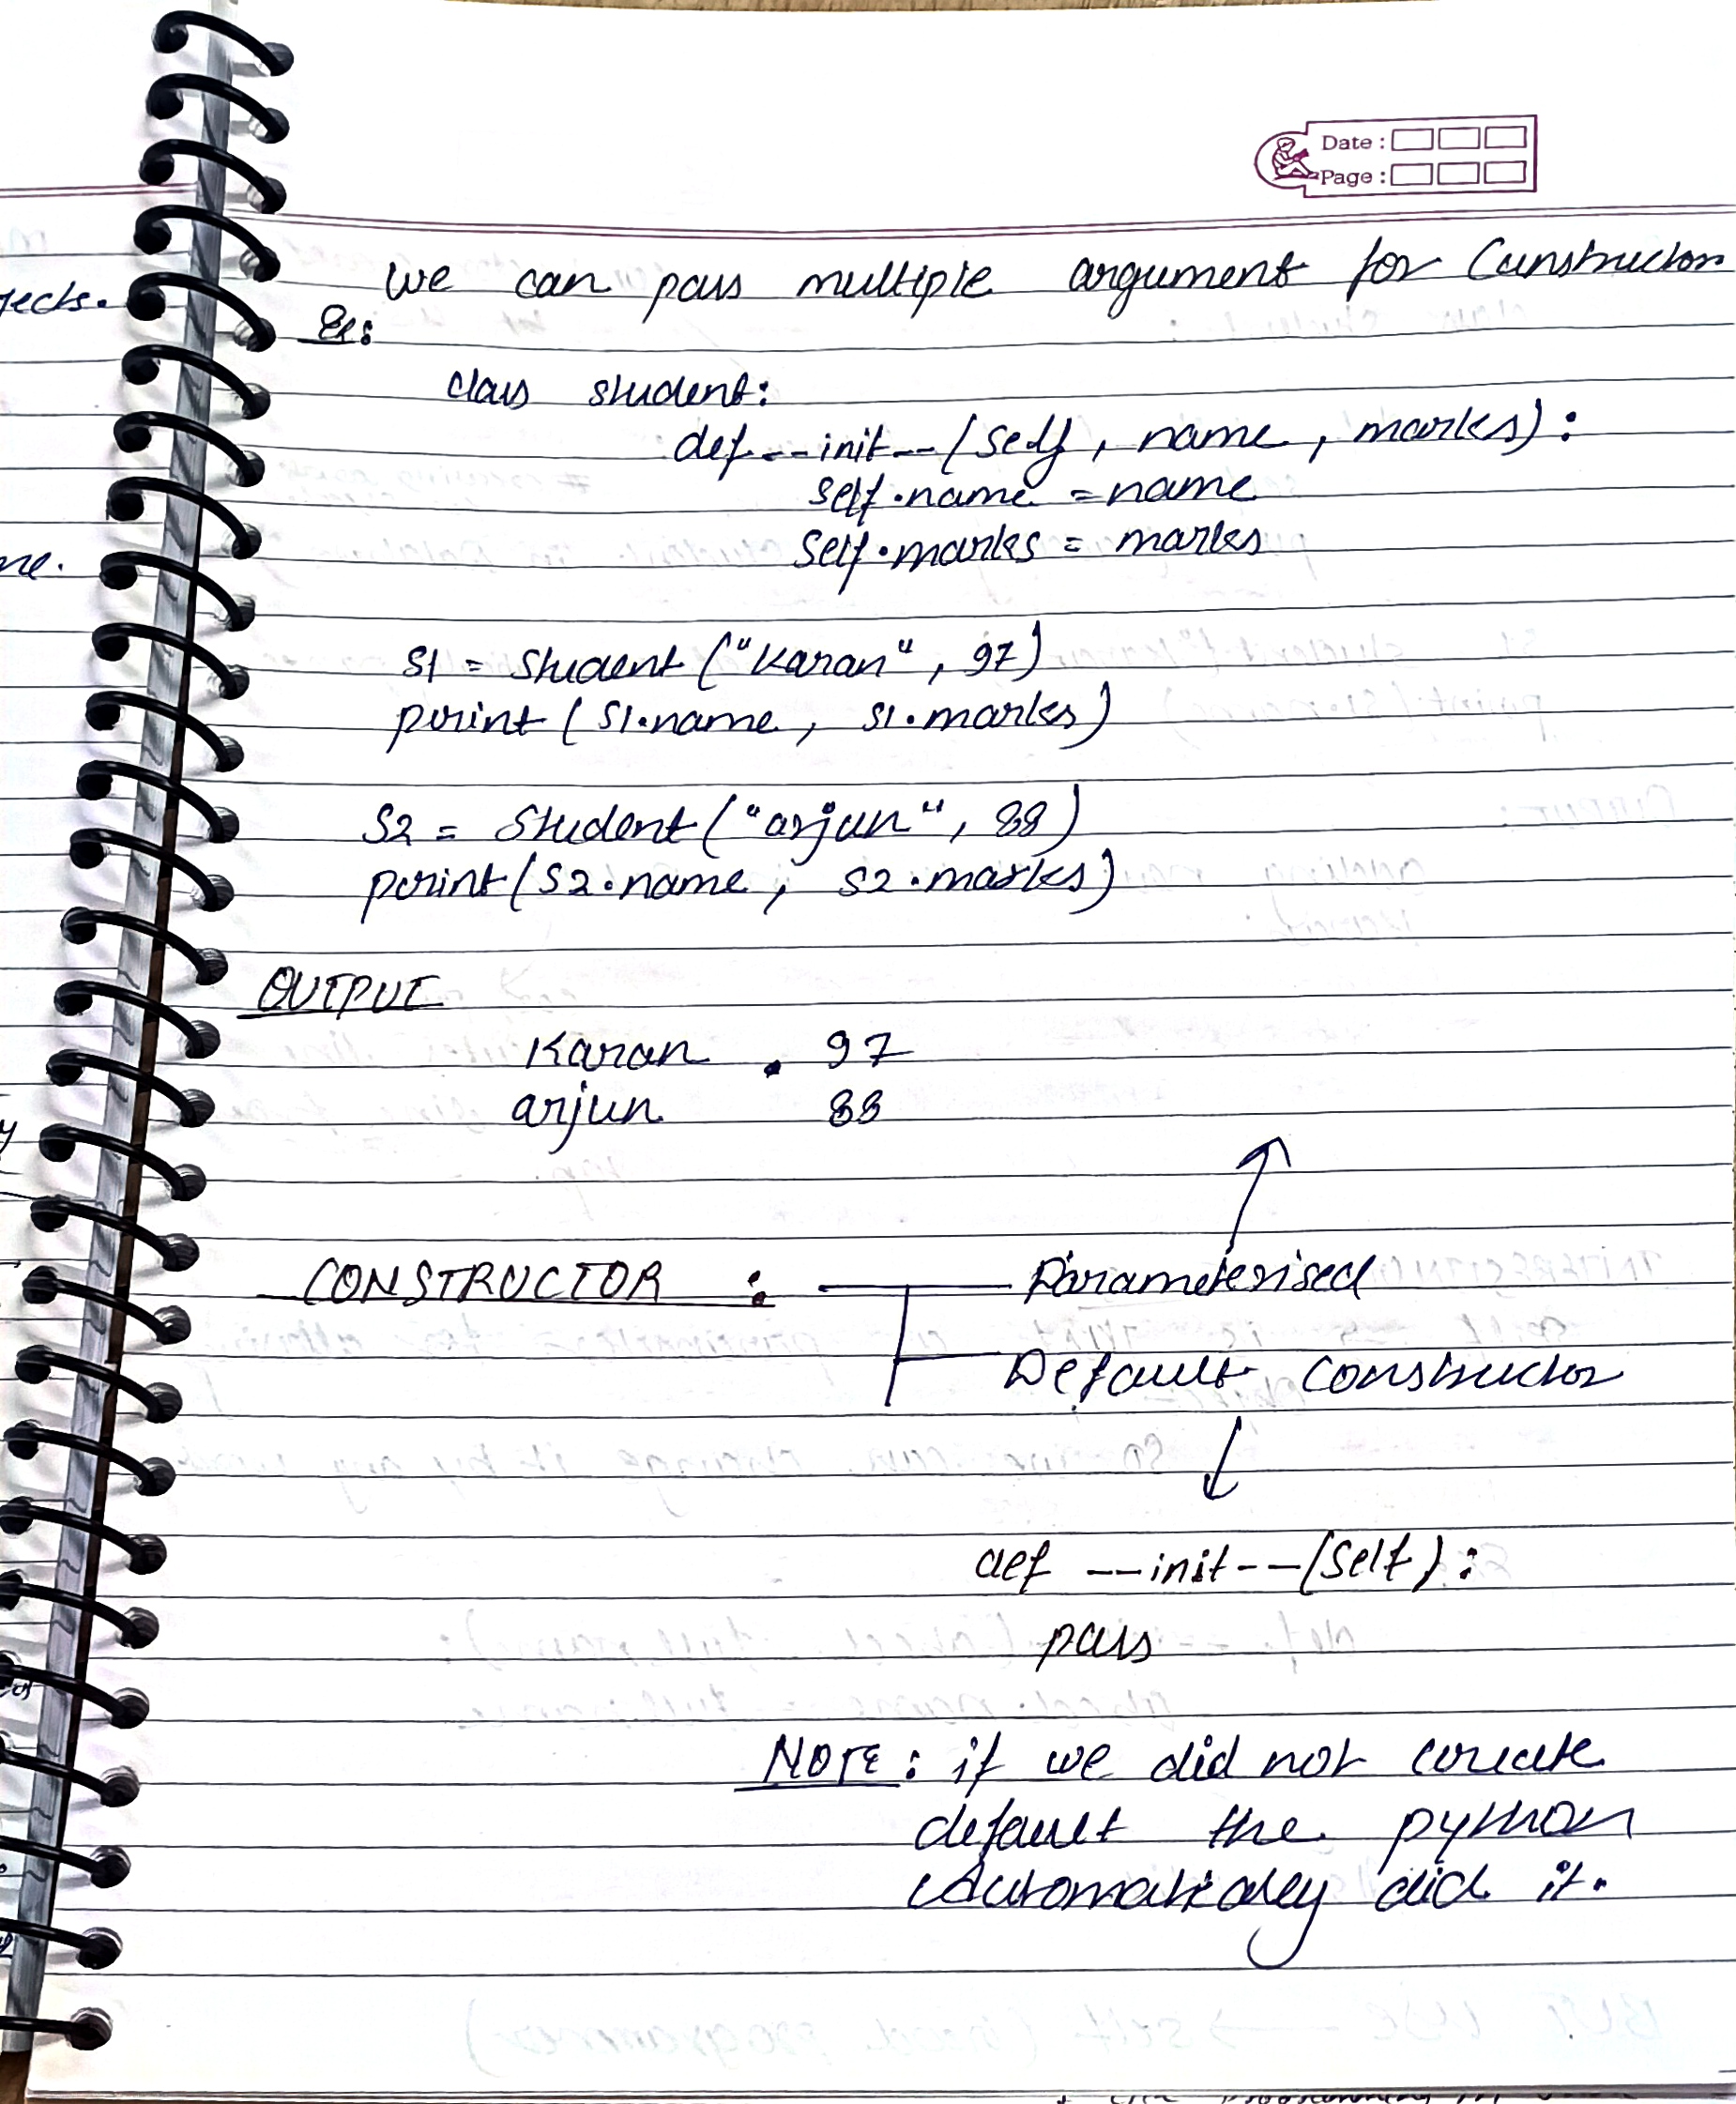 Date :
Page :
we can pass multiple argument for Cunstructor
Ex:
class student:
def __init__(self, name, marks):
self.name = name
self.marks = marks
S1 = Student ("Karan", 97)
print (S1.name, s1.marks)
S2 = Student ("arjun", 88)
print (S2.name, S2.marks)
OUTPUT
Karan . 97
arjun 88
CONSTRUCTOR : Parameterised
Default constructor
def __init__(self):
pass
NOTE: if we did not create
default the python
Automatically did it.
jects.
me.
y